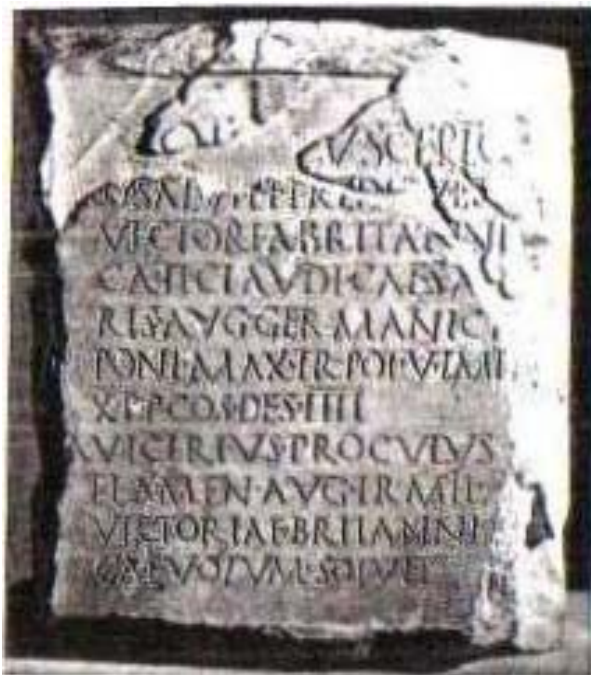 VSCEPTO
VICTORIA BRITANNI
CA·TI·CLAVDI·CAESA
RIS·AVG·GERMANICI
PONT·MAX·TR·POT·V·IMP
X·P·P·COS·DES·IIII
A·VICIRIVS·PROCVLVS
FLAMEN·AVG·TR·MIL
VICTORIAE·BRITANNI
CAE·VOTVM·SOLVIT